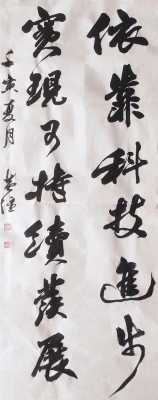 依靠科技進步
實現可持續發展
壬癸夏月